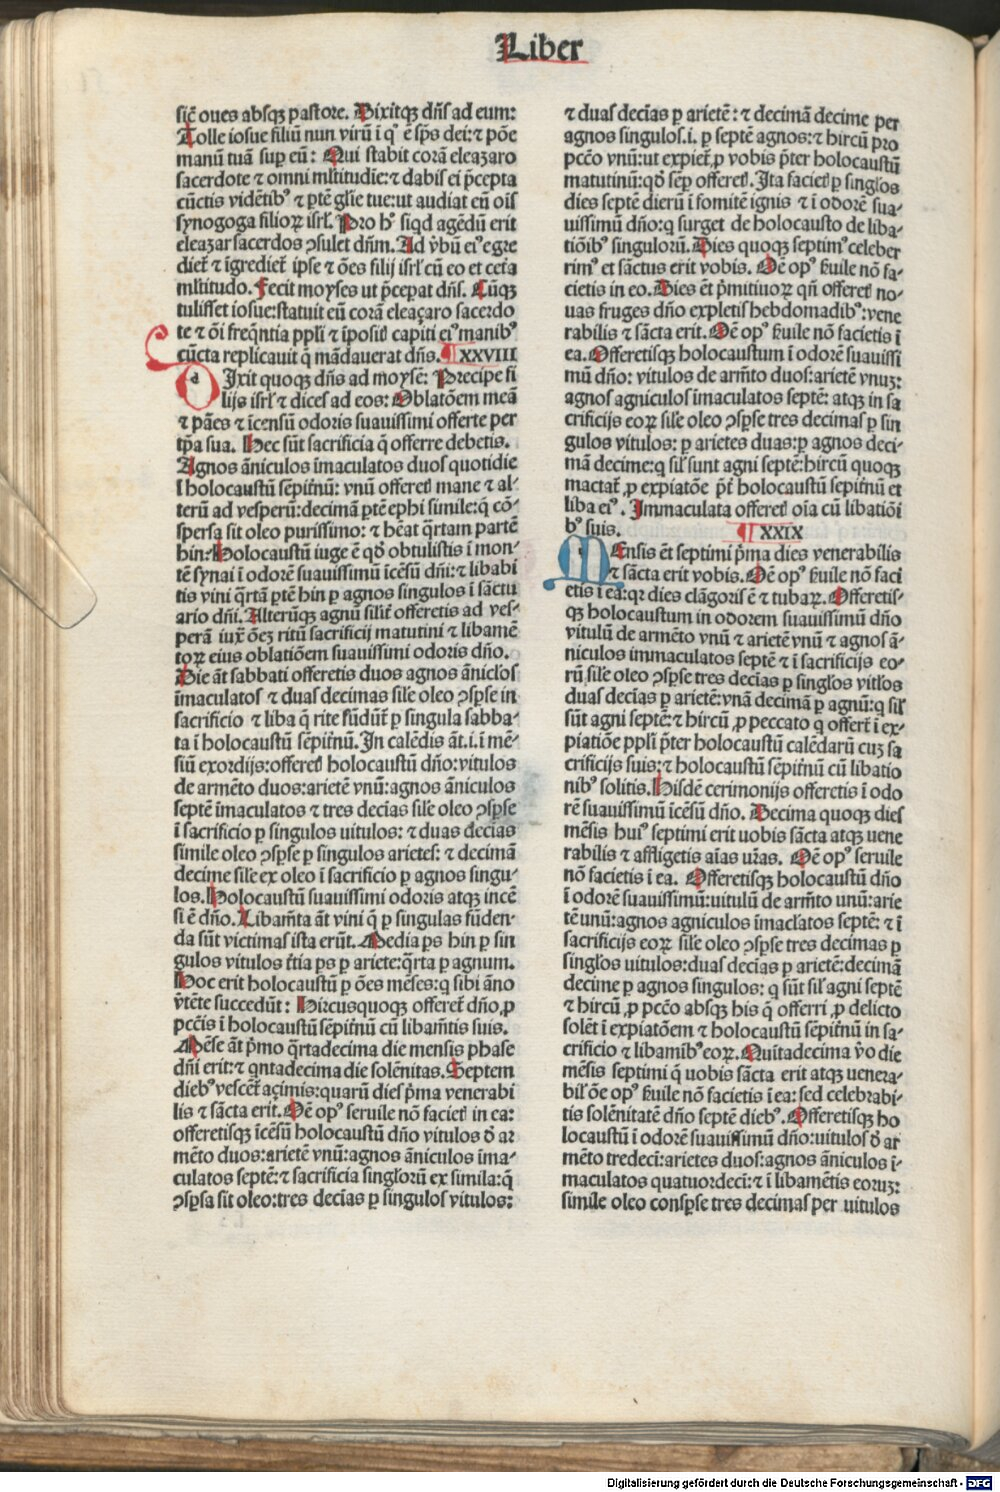 Liber
sic̄ oues absqꝫ pastore. Dixitqꝫ dn̄s ad eum:
Tolle iosue filiū nun virū ī qꝰ ē sp̄s dei: ⁊ pōe
manū tuā suꝑ eū: Qui stabit corā eleazaro
sacerdote ⁊ omni ml̄titudīe: ⁊ dabis ei p̄cepta
cūctis vidētibꝰ ⁊ ꝑtē gl̄ie tue: ut audiat eū oīs
synogoga filioꝝ isrl̄. Pro hꝰ siqd agēdū erit
eleazar sacerdos ꝯsulet dn̄m. Ad v̄bū eiꝰ egre
diet̄ ⁊ īgrediet̄ ipse ⁊ ōēs filij isrl̄ cū eo et cet̄a
ml̄titudo. Fecit moyses ut p̄ceꝑat dn̄s. Cūqꝫ
tulisset iosue: statuit eū corā eleaçaro sacerdo
te ⁊ ōi freq̄ntia ppl̄i ⁊ īposiꝭ capiti eiꝰ manibꝰ
cūcta replicauit q̄ mādauerat dn̄s. ¶ XXVIII
DIxit quoqꝫ dn̄s ad moysē: Precipe fi
lijs isrl̄ ⁊ dices ad eos: Oblatōem meā
⁊ pāes ⁊ īcensū odoris suauissimi offerte per
tp̄a sua. Hec sūt sacrificia q̄ offerre debetis.
Agnos āniculos īmaculatos duos quotidie
ī holocaustū sēpit̄nū: vnū offeretꝭ mane ⁊ al-
terū ad vesperū: decimā ꝑtē ephi simile: q̄ cō-
spersa sit oleo purissimo: ⁊ hēat q̄rtam partē
hin: Holocaustū iuge ē qd̄ obtulistis ī mon-
tē synai ī odorē suauissimū īcēsū dn̄i: ⁊ libabi
tis vini q̄rtā ꝑtē hin ꝑ agnos singulos ī sāctu
ario dn̄i. Alterūqꝫ agnū silīt offeretis ad ves-
perā iux̄ ōeꝫ ritū sacrificij matutini ⁊ libamē
toꝝ eius oblatiōem suauissimi odoris dn̄o.
Die āt sabbati offeretis duos agnos ānicl̄os
īmaculatos ⁊ duas decimas sil̄e oleo ꝯsꝑse in
sacrificio ⁊ liba q̄ rite fūdūt̄ ꝑ singula sabba-
ta ī holocaustū sēpit̄nū. In calēdis āt.i.ī mē-
siū exordijs: offeretꝭ holocaustū dn̄o: vitulos
de armēto duos: arietē vnū: agnos āniculos
septē īmaculatos ⁊ tres decīas sil̄e oleo ꝯsꝑse
ī sacrificio ꝑ singulos uitulos: ⁊ duas decīas
simile oleo ꝯsꝑse ꝑ singulos arietes: ⁊ decimā
decime sil̄e ex oleo ī sacrificio ꝑ agnos singu-
los. Holocaustū suauissimi odoris atqꝫ incē
si ē dn̄o. Libam̄ta āt vini q̄ ꝑ singulas fūden-
da sūt victimas ista erūt. Media ps hin ꝑ sin
gulos vitulos t̄tia ps ꝑ ariete: q̄rta ꝑ agnum.
Hoc erit holocaustū ꝑ ōes mēses: q sibi āno
v̄tēte succedūt: Hircusquoqꝫ offeret̄ dn̄o ꝓ
pcc̄is ī holocaustū sēpit̄nū cū libam̄tis suis.
Mēse āt p̄mo q̄rtadecima die mensis phase
dn̄i erit: ⁊ qntadecima die solēnitas. Septem
diebꝰ vescēt̄ açimis: quarū dies p̄ma venerabi
lis ⁊ sācta erit. Oē opꝰ seruile nō facietꝭ in ea:
offeretisqꝫ īcēsū holocaustū dn̄o vitulos ꝺ̄ ar
mēto duos: arietē vnū: agnos āniculos īma-
culatos septē: ⁊ sacrificia singl̄orū ex simila: q̄
ꝯsꝑsa sit oleo: tres decīas ꝑ singulos vitulos:
⁊ duas decīas ꝑ arietē: ⁊ decimā decime per
agnos singulos.i. ꝑ septē agnos: ⁊ hircū pro
pcc̄o vnū: ut expiet̄ ꝓ vobis p̄ter holocaustū
matutinū: qd̄ sēꝑ offeretꝭ. Ita facietꝭ ꝑ singl̄os
dies septē dierū ī fomitē ignis ⁊ ī odorē sua-
uissimū dn̄o: q surget de holocausto de liba-
tiōibꝰ singulorū. Dies quoqꝫ septimꝰ celeber
rimꝰ et sāctus erit vobis. Oē opꝰ ẜuile nō fa-
cietis in eo. Dies ēt p̄mitiuoꝝ qn̄ offeretꝭ no-
uas fruges dn̄o expletis hebdomadibꝰ: vene
rabilis ⁊ sācta erit. Oē opꝰ ẜuile nō facietis ī
ea. Offeretisqꝫ holocaustum ī odorē suauissi
mū dn̄o: vitulos de arm̄to duos: arietē vnuꝫ:
agnos agniculos īmaculatos septē: atqꝫ in sa
crificijs eoꝝ sil̄e oleo ꝯsꝑse tres decimas ꝑ sin
gulos vitulos: ꝑ arietes duas: ꝑ agnos deci-
mā decime: q sil̄ sunt agni septē: hircū quoqꝫ
mactat̄ ꝓ expiatōe p̄t̄ holocaustū sēpit̄nū et
liba eiꝰ. Immaculata offeretꝭ oīa cū libatiōi
bꝰ suis. ¶ XXIX
MEnsis ēt septimi p̄ma dies venerabilis
⁊ sācta erit vobis. Oē opꝰ ẜuile nō faci
etis ī ea: qꝛ dies clāgoris ē ⁊ tubaꝝ. Offeretis-
qꝫ holocaustum in odorem suauissimū dn̄o
vitulū de armēto vnū ⁊ arietē vnū ⁊ agnos ā-
niculos immaculatos septē ⁊ ī sacrificijs eo-
rū sil̄e oleo ꝯsꝑse tres decīas ꝑ singl̄os vitl̄os
duas decīas ꝑ arietē: vnā decimā ꝑ agnū: q sil̄
sūt agni septē: ⁊ hircū ꝓ peccato q offert̄ ī ex-
piatiōe ppl̄i p̄ter holocaustū calēdarū cuꝫ sa
crificijs suis: ⁊ holocaustū sēpit̄nū cū libatio
nibꝰ solitis. Hisdē cerimonijs offeretis ī odo
rē suauissimū īcēsū dn̄o. Decima quoqꝫ dies
mēsis huiꝰ septimi erit uobis sācta atqꝫ uene
rabilis ⁊ affligetis aīas ur̄as. Oē opꝰ seruile
nō facietis ī ea. Offeretisqꝫ holocaustū dn̄o
ī odorē suauissimū: vitulū de arm̄to unū: arie
tē unū: agnos agniculos īmacl̄atos septē: ⁊ ī
sacrificijs eoꝝ sil̄e oleo ꝯsꝑse tres decimas ꝑ
singl̄os uitulos: duas decīas ꝑ arietē: decimā
decime ꝑ agnos singulos: q sūt sil̄ agni septē
⁊ hircū ꝓ pcc̄o absqꝫ his q̄ offerri ꝓ delicto
solēt ī expiatōem ⁊ holocaustū sēpit̄nū in sa-
crificio ⁊ libamibꝰ eoꝝ. Quītadecima v̄o die
mēsis septimi q̄ uobis sācta erit atqꝫ uenera-
bil̄ ōe opꝰ ẜuile nō facietis ī ea: sed celebrabi-
tis solēnitatē dn̄o septē diebꝰ. Offeretisqꝫ ho
locaustū ī odorē suauissimū dn̄o: uitulos ꝺ̄ ar
mēto tredecī: arietes duos: agnos āniculos ī-
maculatos quatuordecī: ⁊ ī libamētis eoruꝫ:
simile oleo consꝑse tres decimas per uitulos
Digitalisierung gefördert durch die Deutsche Forschungsgemeinschaft - DFG